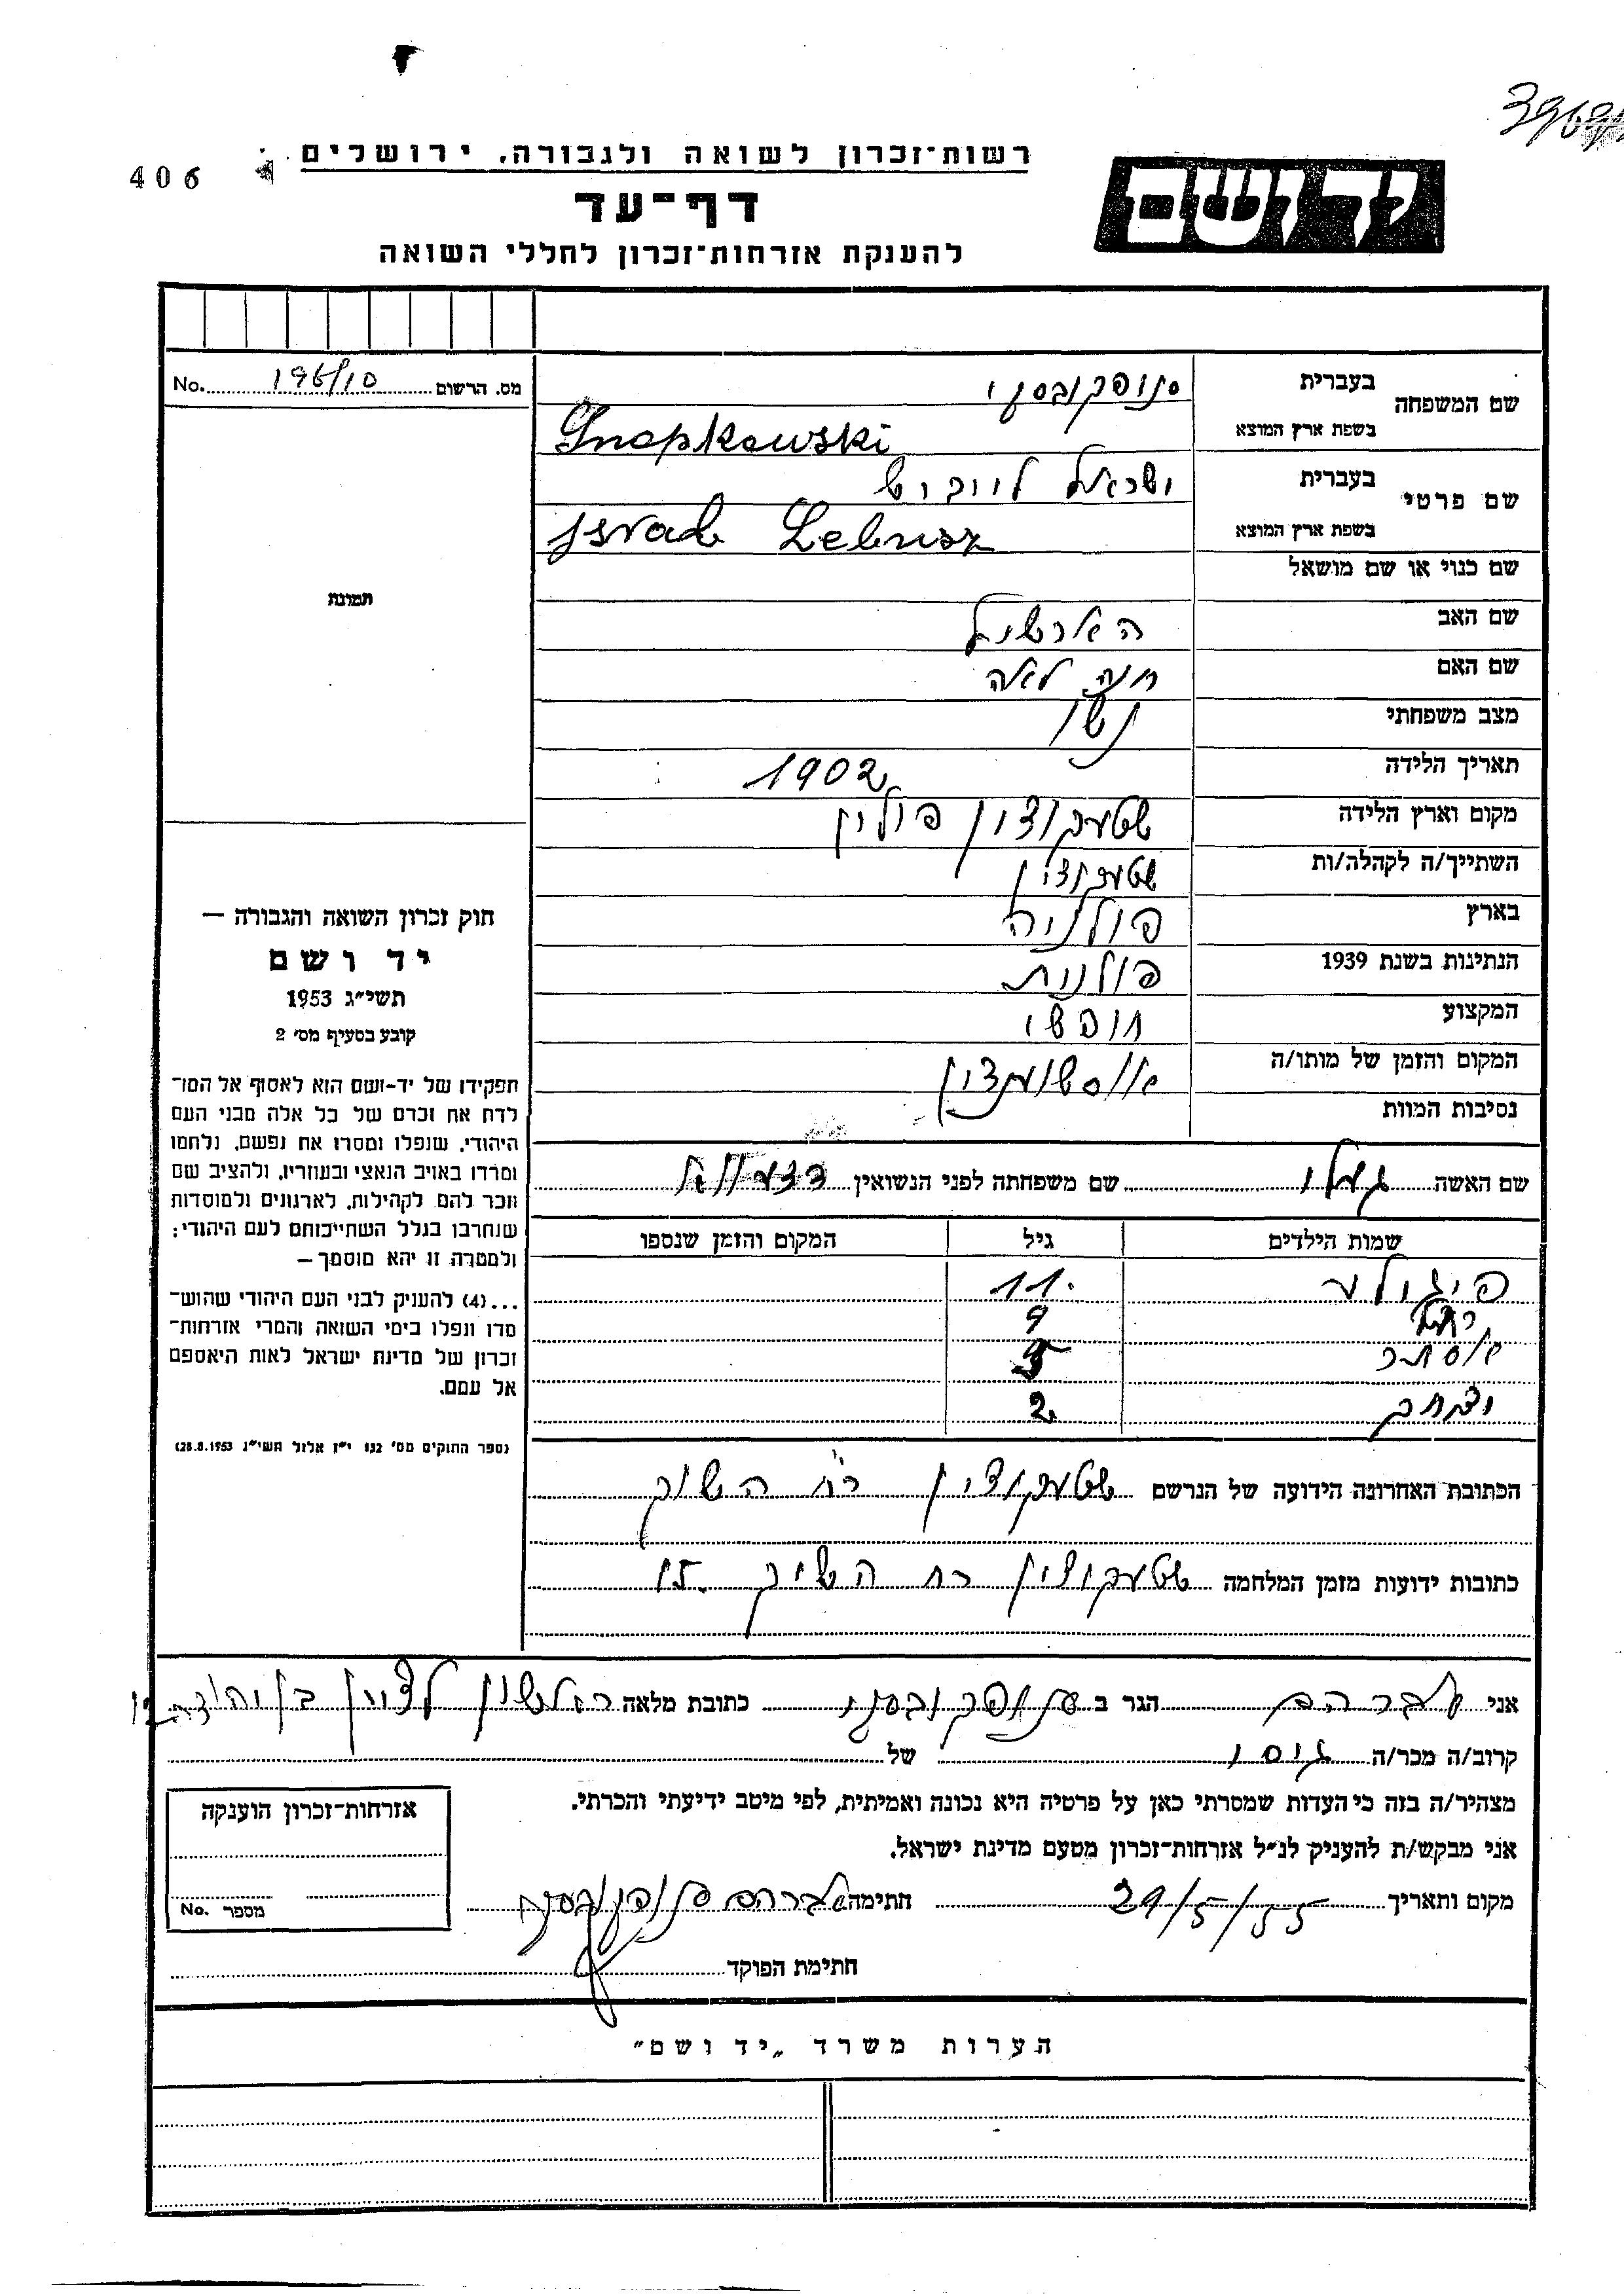 406
רשות־זכרון לשואה ולגבורה, ירושלים
יד ושם
דף־עד
להענקת אזרחות־זכרון לחללי השואה
מס. הרשום 196/10 No.
שם המשפחה
בעברית סנופקובסקי
בשפת ארץ המוצא Snopkowski
שם פרטי
בעברית ישראל לייבוש
בשפת ארץ המוצא Israel Lebusz
שם כנוי או שם מושאל
שם האב הערשיל
שם האם חנה לאה
מצב משפחתי נשוי
תאריך הלידה 1902
מקום וארץ הלידה פולין
השתייך/ה לקהלה/ות
בארץ פולניה
הנתינות בשנת 1939 פולנית
המקצוע חופשי
המקום והזמן של מותו/ה
נסיבות המוות
שם האשה שם משפחתה לפני הנשואין
שמות הילדים גיל המקום והזמן שנספו
11
9
אסתר 5
יצחק 2
הכתובת האחרונה הידועה של הנרשם רח השוק
כתובות ידועות מזמן המלחמה רח השוק 15
תמונה
חוק זכרון השואה והגבורה —
יד ושם
תשי״ג 1953
קובע בסעיף מס׳ 2
תפקידו של יד-ושם הוא לאסוף אל המו־
לדת את זכרם של כל אלה מבני העם
היהודי, שנפלו ומסרו את נפשם, נלחמו
ומרדו באויב הנאצי ובעוזריו, ולהציב שם
וזכר להם לקהילות, לארגונים ולמוסדות
שנחרבו בגלל השתייכותם לעם היהודי;
ולמטרה זו יהא מוסמך —
...(4) להעניק לבני העם היהודי שהוש־
מדו ונפלו בימי השואה והמרי אזרחות־
זכרון של מדינת ישראל לאות היאספם
אל עמם.
(ספר החוקים מס׳ 132 י״ז אלול תשי״ג 28.8.1953)
אני אברהם הגר ב סנופקובסקי כתובת מלאה ראשון לציון בן יהודה 12
קרוב/ה מכר/ה גיסו של
מצהיר/ה בזה כי העדות שמסרתי כאן על פרטיה היא נכונה ואמיתית, לפי מיטב ידיעתי והכרתי.
אני מבקש/ת להעניק לנ״ל אזרחות־זכרון מטעם מדינת ישראל.
מקום ותאריך 29/5/55 חתימה אברהם סנופקובסקי
חתימת הפוקד
אזרחות־זכרון הוענקה
מספר No.
הערות משרד „יד ושם"